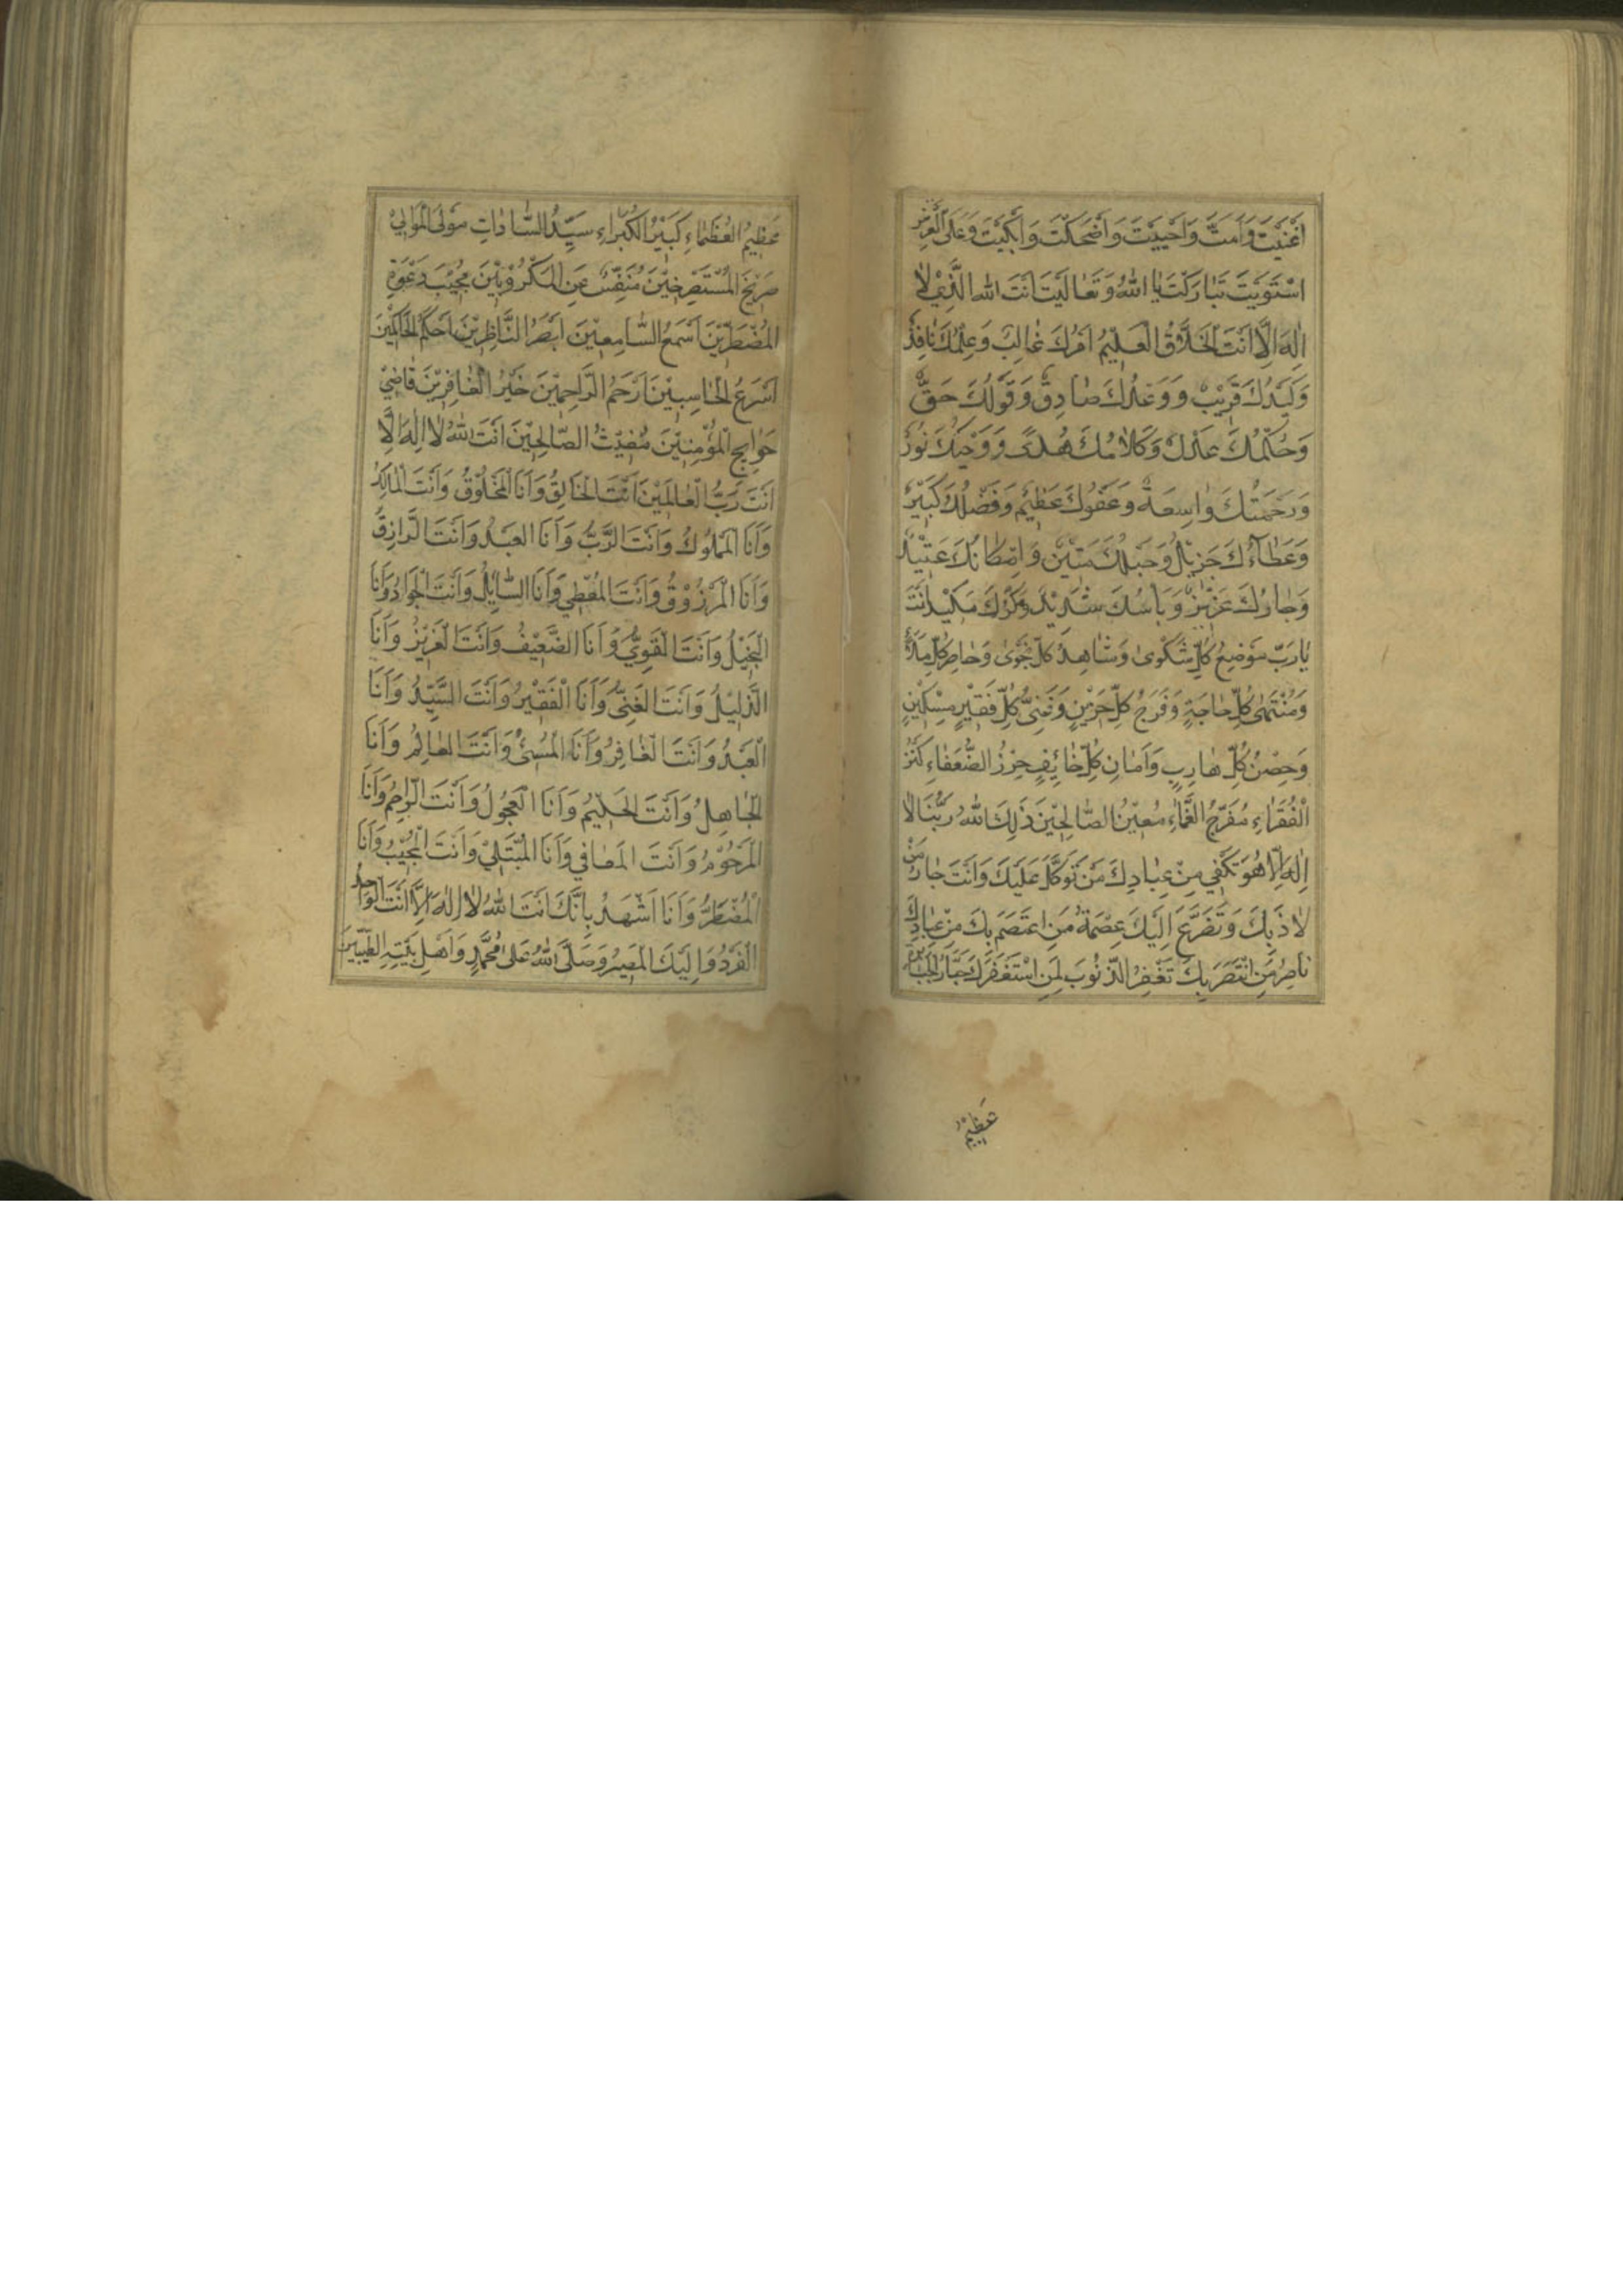 اَغْنَيْتَ وَاَمَتَّ وَاَحْيَيْتَ وَاَضْحَكْتَ وَاَبْكَيْتَ وَعَلَى الْعَرْشِ
اسْتَوَيْتَ تَبَارَكْتَ يَا اَللّٰهُ وَتَعَالَيْتَ اَنْتَ اللّٰهُ الَّذِيْ لَا
اِلٰهَ اِلَّا اَنْتَ الْخَلَّاقُ الْعَلِيْمُ اَمْرُكَ غَالِبٌ وَعِلْمُكَ نَافِذٌ
وَكَيْدُكَ قَرِيْبٌ وَوَعْدُكَ صَادِقٌ وَقَوْلُكَ حَقٌّ
وَحُكْمُكَ عَدْلٌ وَكَلَامُكَ هُدًى وَوَحْيُكَ نُوْرٌ
وَرَحْمَتُكَ وَاسِعَةٌ وَعَفْوُكَ عَظِيْمٌ وَفَضْلُكَ كَبِيْرٌ
وَعَطَاۤءُكَ جَزِيْلٌ وَحَبْلُكَ مَتِيْنٌ وَاِمْكَانُكَ عَتِيْدٌ
وَجَارُكَ عَزِيْزٌ وَبَاْسُكَ شَدِيْدٌ وَمَكْرُكَ مَكِيْدٌ اَنْتَ
يَا رَبِّ مَوْضِعُ كُلِّ شَكْوٰى وَشَاهِدُ كُلِّ نَجْوٰى وَحَاضِرُ كُلِّ مَلَاءٍ
وَمُنْتَهٰى كُلِّ حَاجَةٍ وَفَرَجُ كُلِّ حَزِيْنٍ وَغَنِيُّ كُلِّ فَقِيْرٍ مِسْكِيْنٍ
وَحِصْنُ كُلِّ هَارِبٍ وَاَمَانُ كُلِّ خَائِفٍ حِرْزُ الضُّعَفَاءِ كَنْزُ
الْفُقَرَاءِ مُفَرِّجُ الْغَمَّاءِ مُعِيْنُ الصَّالِحِيْنَ ذٰلِكَ اللّٰهُ رَبُّنَا لَا
اِلٰهَ اِلَّا هُوَ تَكْفِيْ مِنْ عِبَادِكَ مَنْ تَوَكَّلَ عَلَيْكَ وَاَنْتَ جَارُ مَنْ
لَاذَ بِكَ وَتَضَرَّعَ اِلَيْكَ عِصْمَةُ مَنِ اعْتَصَمَ بِكَ مِنْ عِبَادِكَ
نَاصِرُ مَنِ انْتَصَرَ بِكَ تَغْفِرُ الذُّنُوْبَ لِمَنِ اسْتَغْفَرَكَ جَبَّارُ الْجَبَابِرَةِ
عَظِيْمُ
عَظِيْمُ الْعُظَمَاءِ كَبِيْرُ الْكُبَرَاءِ سَيِّدُ السَّادَاتِ مَوْلَى الْمَوَالِيْ
صَرِيْخُ الْمُسْتَصْرِخِيْنَ مُنَفِّسٌ عَنِ الْمَكْرُوْبِيْنَ مُجِيْبُ دَعْوَةِ
الْمُضْطَرِّيْنَ اَسْمَعُ السَّامِعِيْنَ اَبْصَرُ النَّاظِرِيْنَ اَحْكَمُ الْحَاكِمِيْنَ
اَسْرَعُ الْحَاسِبِيْنَ اَرْحَمُ الرَّاحِمِيْنَ خَيْرُ الْغَافِرِيْنَ قَاضِيْ
حَوَايِجِ الْمُؤْمِنِيْنَ مُغِيْثُ الصَّالِحِيْنَ اَنْتَ اللّٰهُ لَا اِلٰهَ اِلَّا
اَنْتَ رَبُّ الْعَالَمِيْنَ اَنْتَ الْخَالِقُ وَاَنَا الْمَخْلُوْقُ وَاَنْتَ الْمَالِكُ
وَاَنَا الْمَمْلُوْكُ وَاَنْتَ الرَّبُّ وَاَنَا الْعَبْدُ وَاَنْتَ الرَّازِقُ
وَاَنَا الْمَرْزُوْقُ وَاَنْتَ الْمُعْطِيْ وَاَنَا السَّايِلُ وَاَنْتَ الْجَوَادُ وَاَنَا
الْبَخِيْلُ وَاَنْتَ الْقَوِيُّ وَاَنَا الضَّعِيْفُ وَاَنْتَ الْعَزِيْزُ وَاَنَا
الذَّلِيْلُ وَاَنْتَ الْغَنِيُّ وَاَنَا الْفَقِيْرُ وَاَنْتَ السَّيِّدُ وَاَنَا
الْعَبْدُ وَاَنْتَ الْغَافِرُ وَاَنَا الْمُسِيْئُ وَاَنْتَ الْعَالِمُ وَاَنَا
الْجَاهِلُ وَاَنْتَ الْحَلِيْمُ وَاَنَا الْعَجُوْلُ وَاَنْتَ الرَّاحِمُ وَاَنَا
الْمَرْحُوْمُ وَاَنْتَ الْمُعَافِيْ وَاَنَا الْمُبْتَلٰى وَاَنْتَ الْمُجِيْبُ وَاَنَا
الْمُضْطَرُّ وَاَنَا اَشْهَدُ بِاَنَّكَ اَنْتَ اللّٰهُ لَا اِلٰهَ اِلَّا اَنْتَ الْوَاحِدُ
الْفَرْدُ وَاِلَيْكَ الْمَصِيْرُ وَصَلَّى اللّٰهُ عَلٰى مُحَمَّدٍ وَاَهْلِ بَيْتِهِ الطَّيِّبِيْنَ